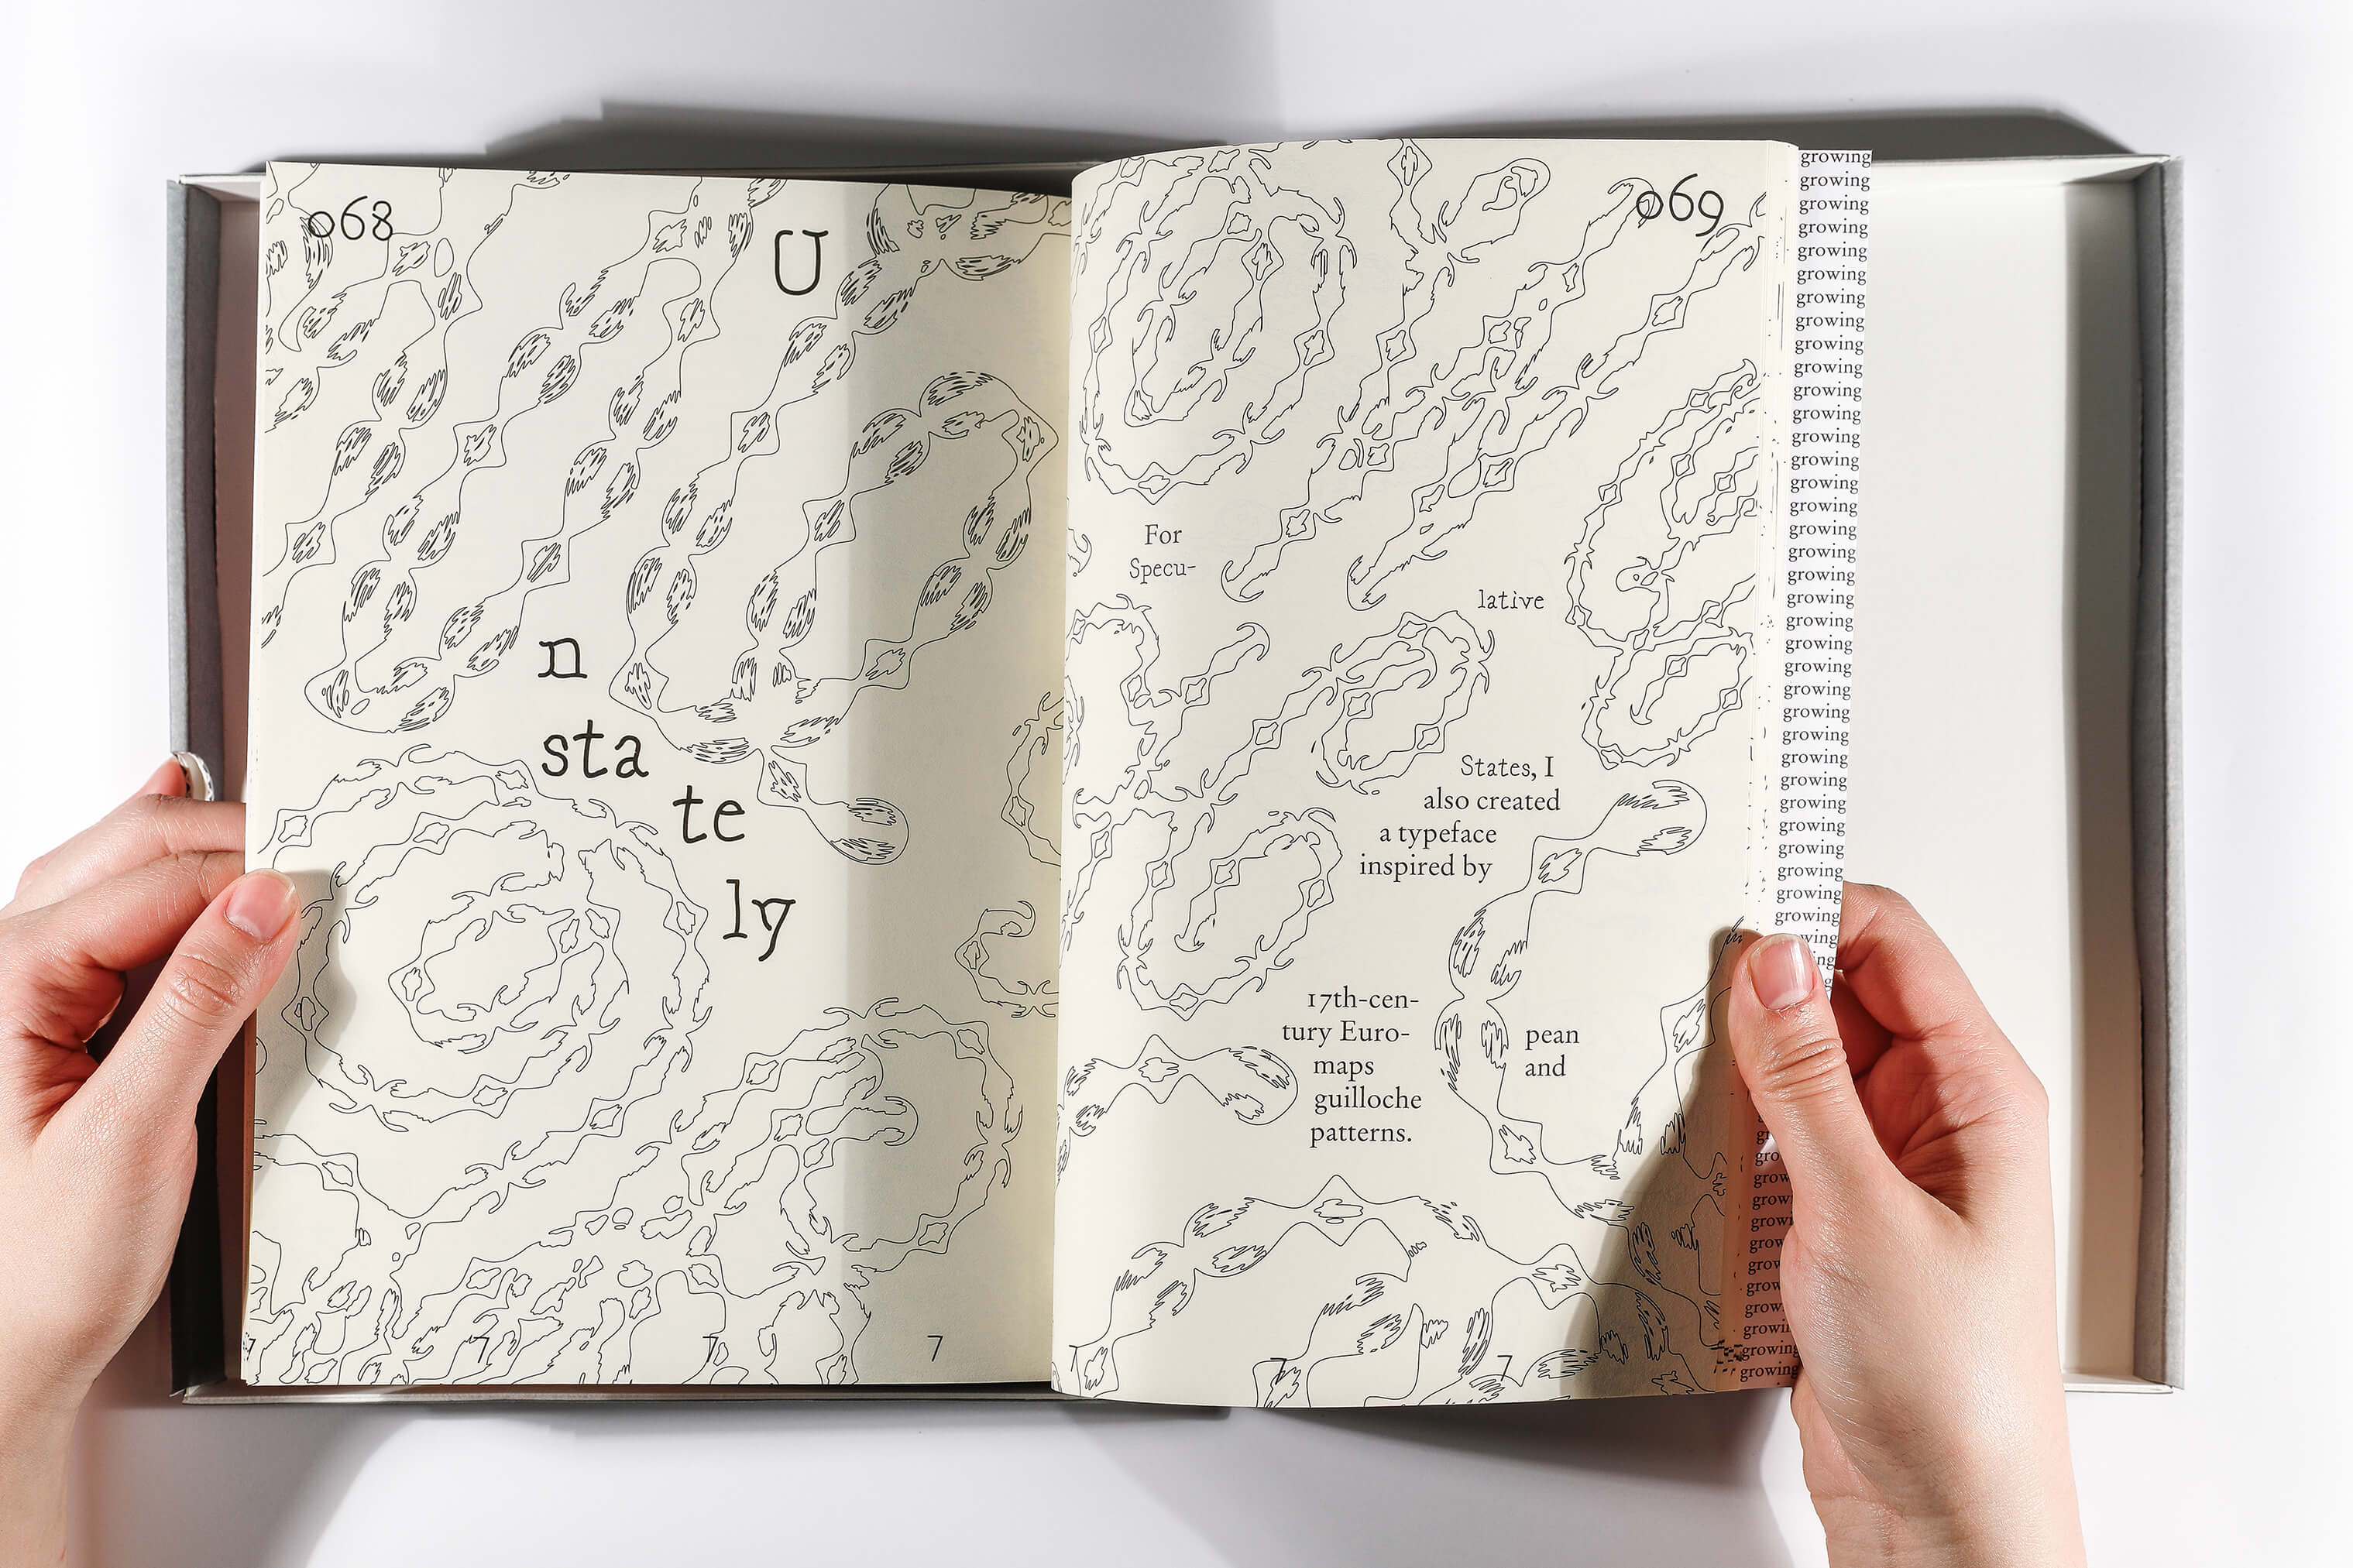 068
U
n
sta
te
ly
7
7
7
7
069
For
Specu-
lative
States, I
also created
a typeface
inspired by
17th-cen-
tury Euro- pean
maps and
guilloche
patterns.
7
7
7
growing
growing
growing
growing
growing
growing
growing
growing
growing
growing
growing
growing
growing
growing
growing
growing
growing
growing
growing
growing
growing
growing
growing
growing
growing
growing
growing
growing
growing
growing
growing
growing
growing
growing
wing
ing
gro
grow
grow
grow
grow
grow
grow
grow
growi
growing
growing